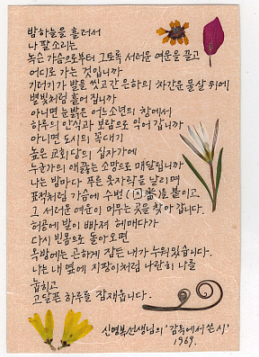 밤하늘을 흘러서
나팔소리는
녹슨 가슴으로부터 그토록 서러운 여운을 끌고
어디로 가는 것입니까
기러기가 발을 씻고간 은하의 차가운 물살 위에
별빛처럼 흩어집니까
아니면 눈 밝은 어느 소년의 창에서
하루의 안식과 보람으로 익어 갑니까
아니면 도시의 꼭대기
높은 교회당의 십자가에
누군가의 애끓는 소망으로 매달립니까
나는 밤마다 푸른 옷자락을 날리며
표적처럼 가슴에 수번 붙이고,
그 서러운 여운이 머무는 곳을 찾아 갑니다.
허공에 발이 빠져 헤매다가
다시 빈몸으로 돌아오면
옥방에는 곤하게 잠든 내가 누워 있습니다.
나는 내 옆에 지팡이처럼 나란히 나를
눕히고
고달픈 하루를 잠재웁니다.
신영복선생님의 '감옥에서 쓴 시'
1969.